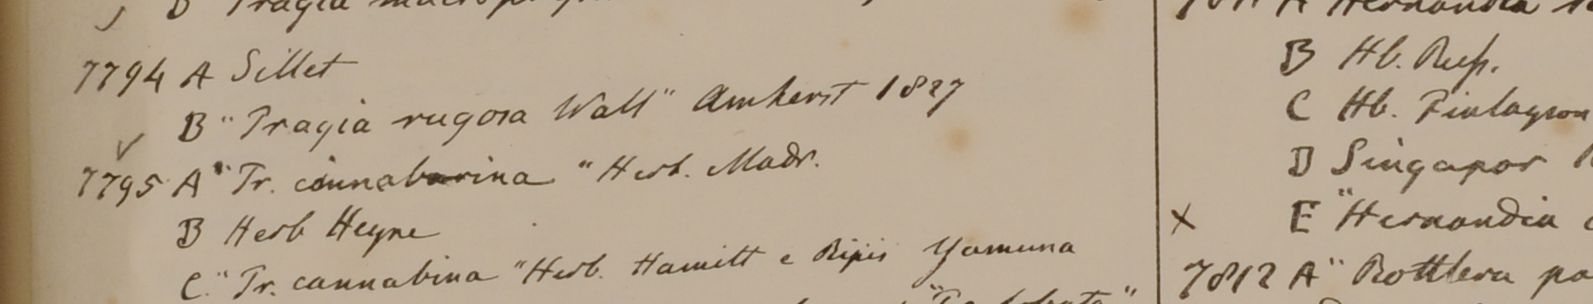 B Tragia
7794 A Sillet
B "Tragia rugosa Wall" Amherst 1827
7795 A "Tr. cinnabarina" Herb. Madr.
B Herb Heyne
C. "Tr. cannabina" Herb. Hamilt e Ripis Yamuna
A Hernandia
B Hb. Russ.
C Hb. Finlayson
D Singapor
E "Hernandia
7812 A "Rottlera